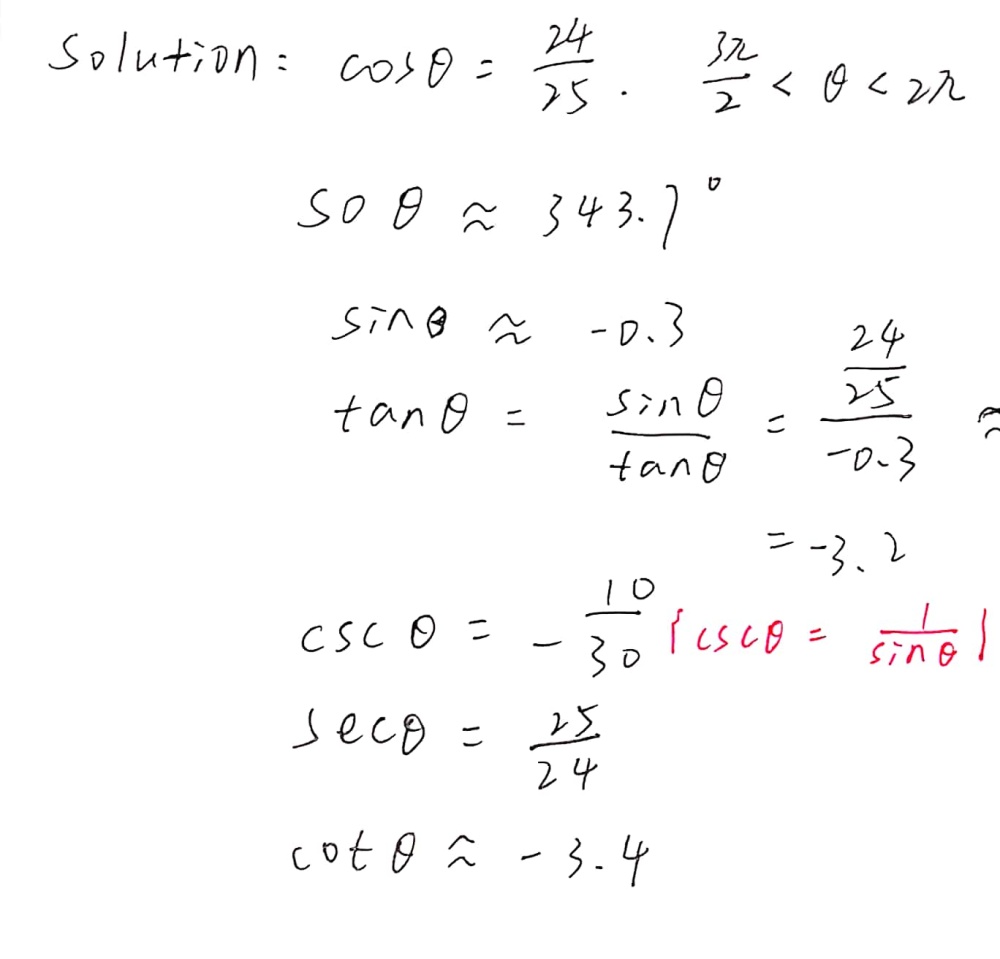 Solution: cosθ = 24/25. 3π/2 < θ < 2π
so θ ≈ 343.7°
sinθ ≈ -0.3
tanθ = sinθ/tanθ = (24/25)/(-0.3) ≈
= -3.2
cscθ = -10/30 {cscθ = 1/sinθ}
secθ = 25/24
cotθ ≈ -3.4